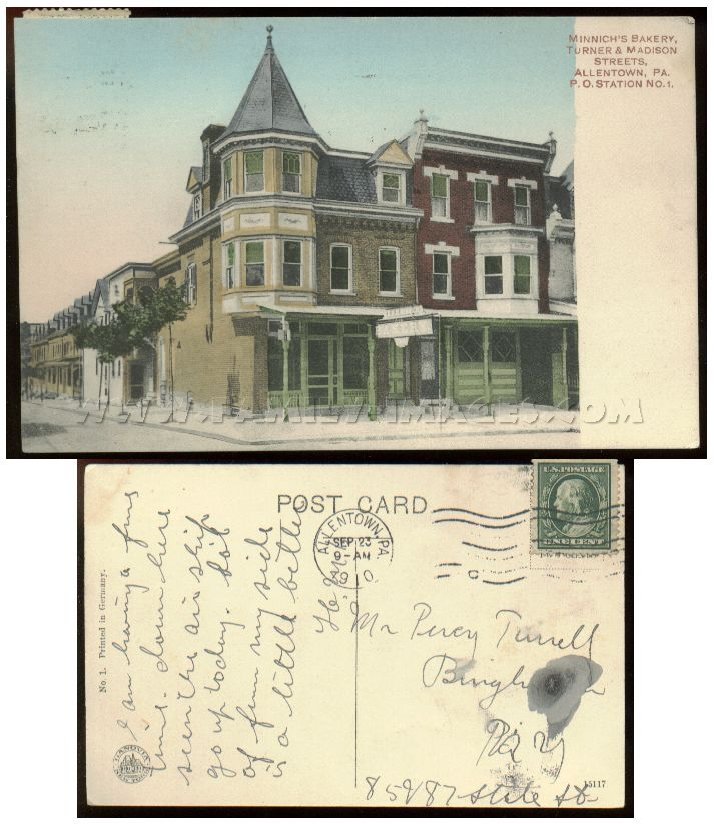 MINNICH'S BAKERY,
TURNER & MADISON
STREETS,
ALLENTOWN, PA.
P. O. STATION NO. 1.
WWW.FAMILYIMAGES.COM
POST CARD
ALLENTOWN, PA.
SEP 23
9-AM
1910
U.S. POSTAGE
ONE CENT
No. 1. Printed in Germany.
I am having a fine
time down here
seen the air ship
go up today. Lot
of fun my side
is a little better
Mr Percy Turrell
859 87 State St
15117